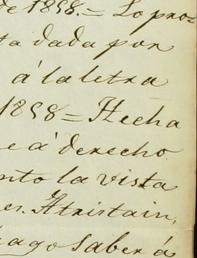 de 1858.= Lo pro=
ta dada por
á la letra
1858 = Hecha
e á derecho
nto la vista
es. Atristain,
hago saber á